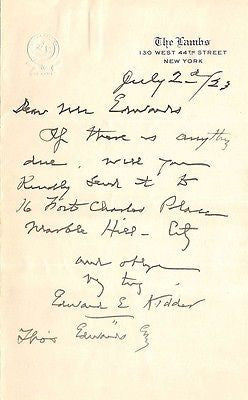 The Lambs
130 WEST 44TH STREET
NEW YORK
July 2d/23
Dear Mr Edwards
If there is anything
due, will you
Kindly send it to
16 Fort Charles Place
Marble Hill - City
and oblige
Edward E. Kidder
Thos Edwards Esq